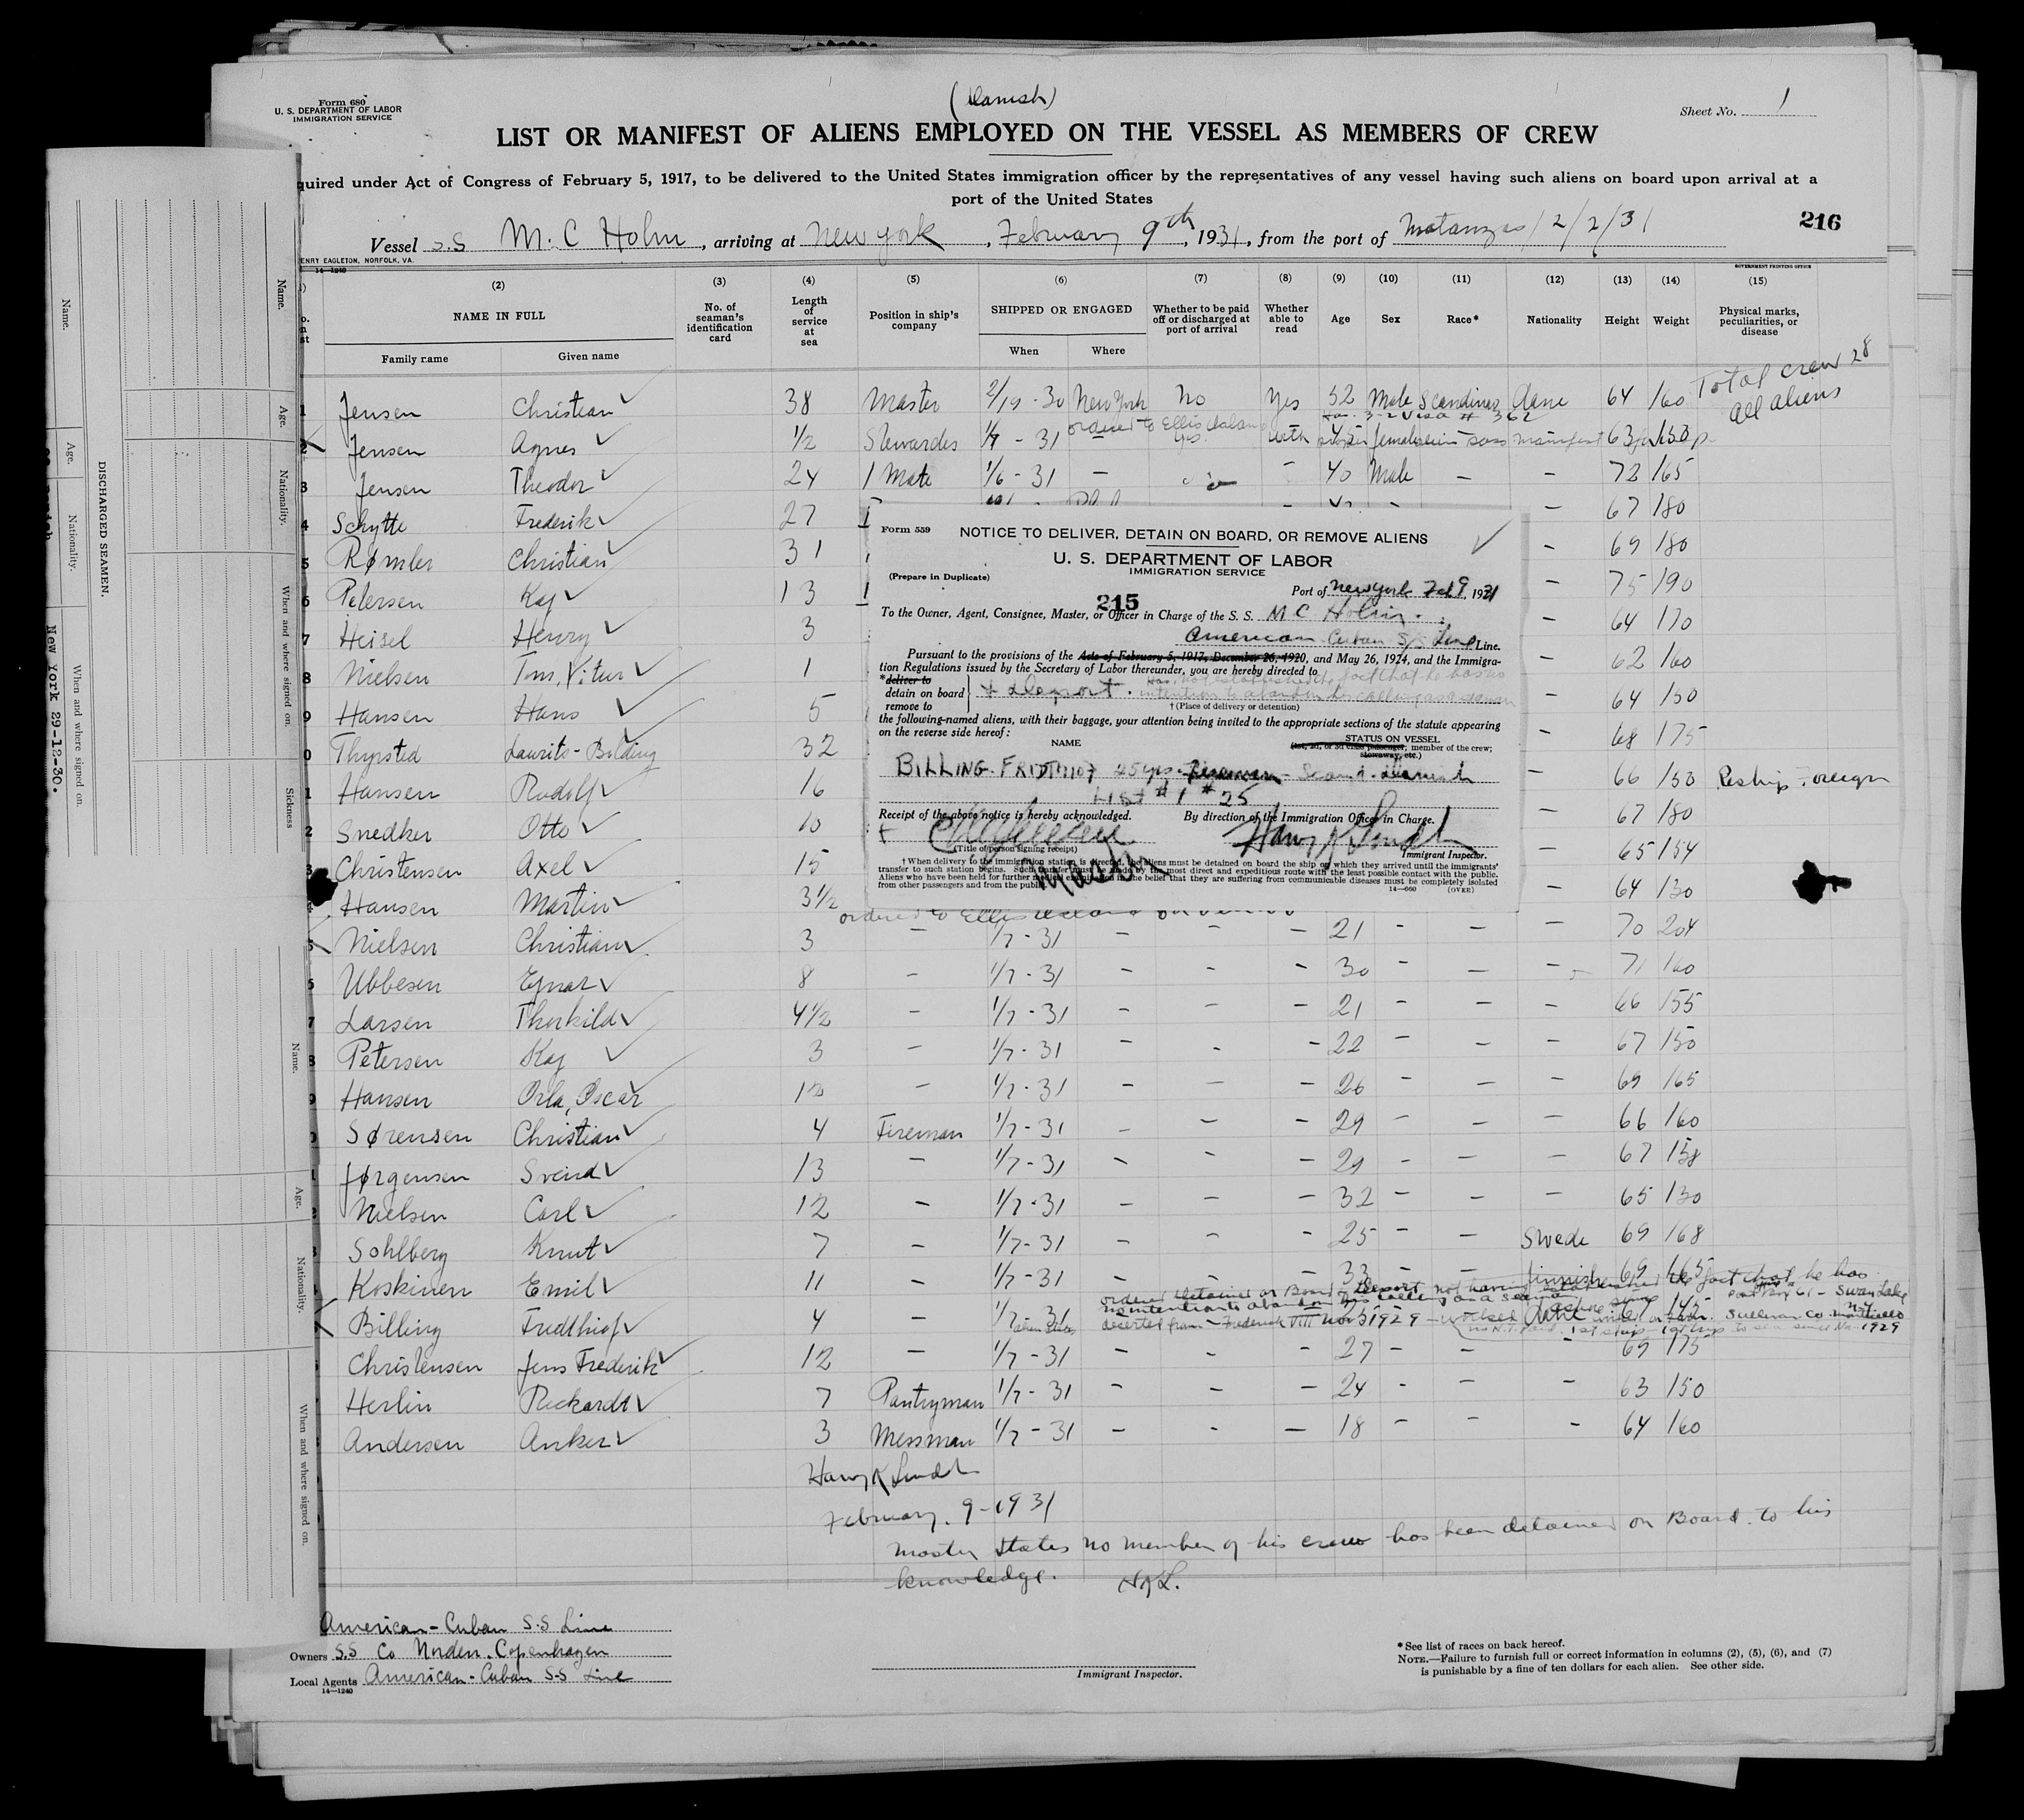 Form 680
U. S. DEPARTMENT OF LABOR
IMMIGRATION SERVICE
(Danish)
Sheet No. 1
LIST OR MANIFEST OF ALIENS EMPLOYED ON THE VESSEL AS MEMBERS OF CREW
quired under Act of Congress of February 5, 1917, to be delivered to the United States immigration officer by the representatives of any vessel having such aliens on board upon arrival at a
port of the United States
216
Vessel S.S M. C Holm, arriving at New york, February 9th, 1931, from the port of Matanzas / 2/2/31
ENRY EAGLETON, NORFOLK, VA.
14—1240
GOVERNMENT PRINTING OFFICE
(2) (3) (4) (5) (6) (7) (8) (9) (10) (11) (12) (13) (14) (15)
NAME IN FULL
Family name Given name
No. of seaman's identification card
Length of service at sea
Position in ship's company
SHIPPED OR ENGAGED
When Where
Whether to be paid off or discharged at port of arrival
Whether able to read
Age
Sex
Race*
Nationality
Height
Weight
Physical marks, peculiarities, or disease
Total crew 28
All aliens
1 Jensen Christian 38 Master 2/19 - 30 New York No Yes 52 Male Scandinav Dane 64 160
ordered to Ellis Island
2 Jensen Agnes 1/2 Stewardes 1/7 - 31 – yes 45 female 63 153
3 Jensen Theodor 24 1 Mate 1/6 - 31 – – 40 Male – – 72 165
4 Schytte Frederik 27 – 67 180
5 Rømler Christian 31 – 69 180
6 Petersen Kaj 13 – 75 190
7 Heisel Henry 3 – 64 170
8 Nielsen Tom, Vitus 1 – 62 160
9 Hansen Hans 5 – 64 150
0 Thyrsted Laurits - Bolding 32 – 68 175
1 Hansen Rudolf 16 – 66 153 Reship Foreign
2 Snedker Otto 10 – 67 180
3 Christensen Axel 15 – 65 154
4 Hansen Martin 3½ – 64 130
ordered to Ellis Island
5 Nielsen Christian 3 – 1/7 - 31 – – – 21 – – – 70 204
Ubbesen Ejnar 8 – 1/7 - 31 – – – 30 – – – 71 160
7 Larsen Thorkild 4½ – 1/7 - 31 – – – 21 – – – 66 155
8 Petersen Kaj 3 – 1/7 - 31 – – – 22 – – – 67 150
9 Hansen Orla, Oscar 12 – 1/7 - 31 – – – 26 – – – 69 165
0 Sørensen Christian 4 Fireman 1/7 - 31 – – – 29 – – – 66 160
1 Jørgensen Sveind 13 – 1/7 - 31 – – – 29 – – – 67 158
Nielsen Carl 12 – 1/7 - 31 – – – 32 – – – 65 130
Sohlberg Knut 7 – 1/7 - 31 – – – 25 – – Swede 69 168
Koskinen Emil 11 – 1/7 - 31 – – – 33 – – finnish 69 165
ordered detained on Board & Deport not having established the fact that he has
no intention to abandon his calling as a seaman Post Box 61 - Swan Lake
Billing Fridthiof 4 – 1/7 31 67 145
deserted from - Frederik VIII Nov 3 1929 - worked Sullivan Co. Monticello
Christensen Jens Frederik 12 – 1/7 - 31 – – – 27 – – – 69 175
Herlin Rickardt 7 Pantryman 1/7 - 31 – – – 24 – – – 63 150
Andersen Anker 3 Messman 1/7 - 31 – – – 18 – – – 64 160
Form 559
NOTICE TO DELIVER, DETAIN ON BOARD, OR REMOVE ALIENS
U. S. DEPARTMENT OF LABOR
IMMIGRATION SERVICE
(Prepare in Duplicate)
Port of New york Feb 9, 1931
215
To the Owner, Agent, Consignee, Master, or Officer in Charge of the S. S. M C Holm.
American Cuban S/S Line Line.
Pursuant to the provisions of the Acts of February 5, 1917, December 26, 1920, and May 26, 1924, and the Immigra-
tion Regulations issued by the Secretary of Labor thereunder, you are hereby directed to
*deliver to
detain on board
remove to
& Deport. Has not established the fact that he has no
intention to abandon his calling as a seaman
† (Place of delivery or detention)
the following-named aliens, with their baggage, your attention being invited to the appropriate sections of the statute appearing
on the reverse side hereof:
NAME
STATUS ON VESSEL
(1st, 2d, or 3d class passenger, member of the crew;
stowaway, etc.)
BILLING. FRIDTHIOF 45 yrs. Fireman - Scand. Danish
LIST # 1 # 25
Receipt of the above notice is hereby acknowledged.
By direction of the Immigration Officer in Charge.
(Title of person signing receipt)
Master
Immigrant Inspector.
† When delivery to the immigration station is directed, the aliens must be detained on board the ship on which they arrived until the immigrants'
transfer to such station begins. Such transfer must be made by the most direct and expeditious route with the least possible contact with the public.
Aliens who have been held for further medical examination in the belief that they are suffering from communicable diseases must be completely isolated
from other passengers and from the public.
14—660 (OVER)
February. 9 - 1931
Master states no member of his crew has been detained on Board to his
knowledge. HKL.
American - Cuban S.S Line
Owners S.S Co Norden. Copenhagen
Local Agents American - Cuban S-S Line
14—1240
Immigrant Inspector.
*See list of races on back hereof.
NOTE.—Failure to furnish full or correct information in columns (2), (5), (6), and (7)
is punishable by a fine of ten dollars for each alien. See other side.
DISCHARGED SEAMEN.
Name.
Age.
Nationality.
When and where signed on.
New York 29-12-30.
Name.
Age.
Nationality.
When and where signed on.
Sickness
Name.
Age.
Nationality.
When and where signed on.